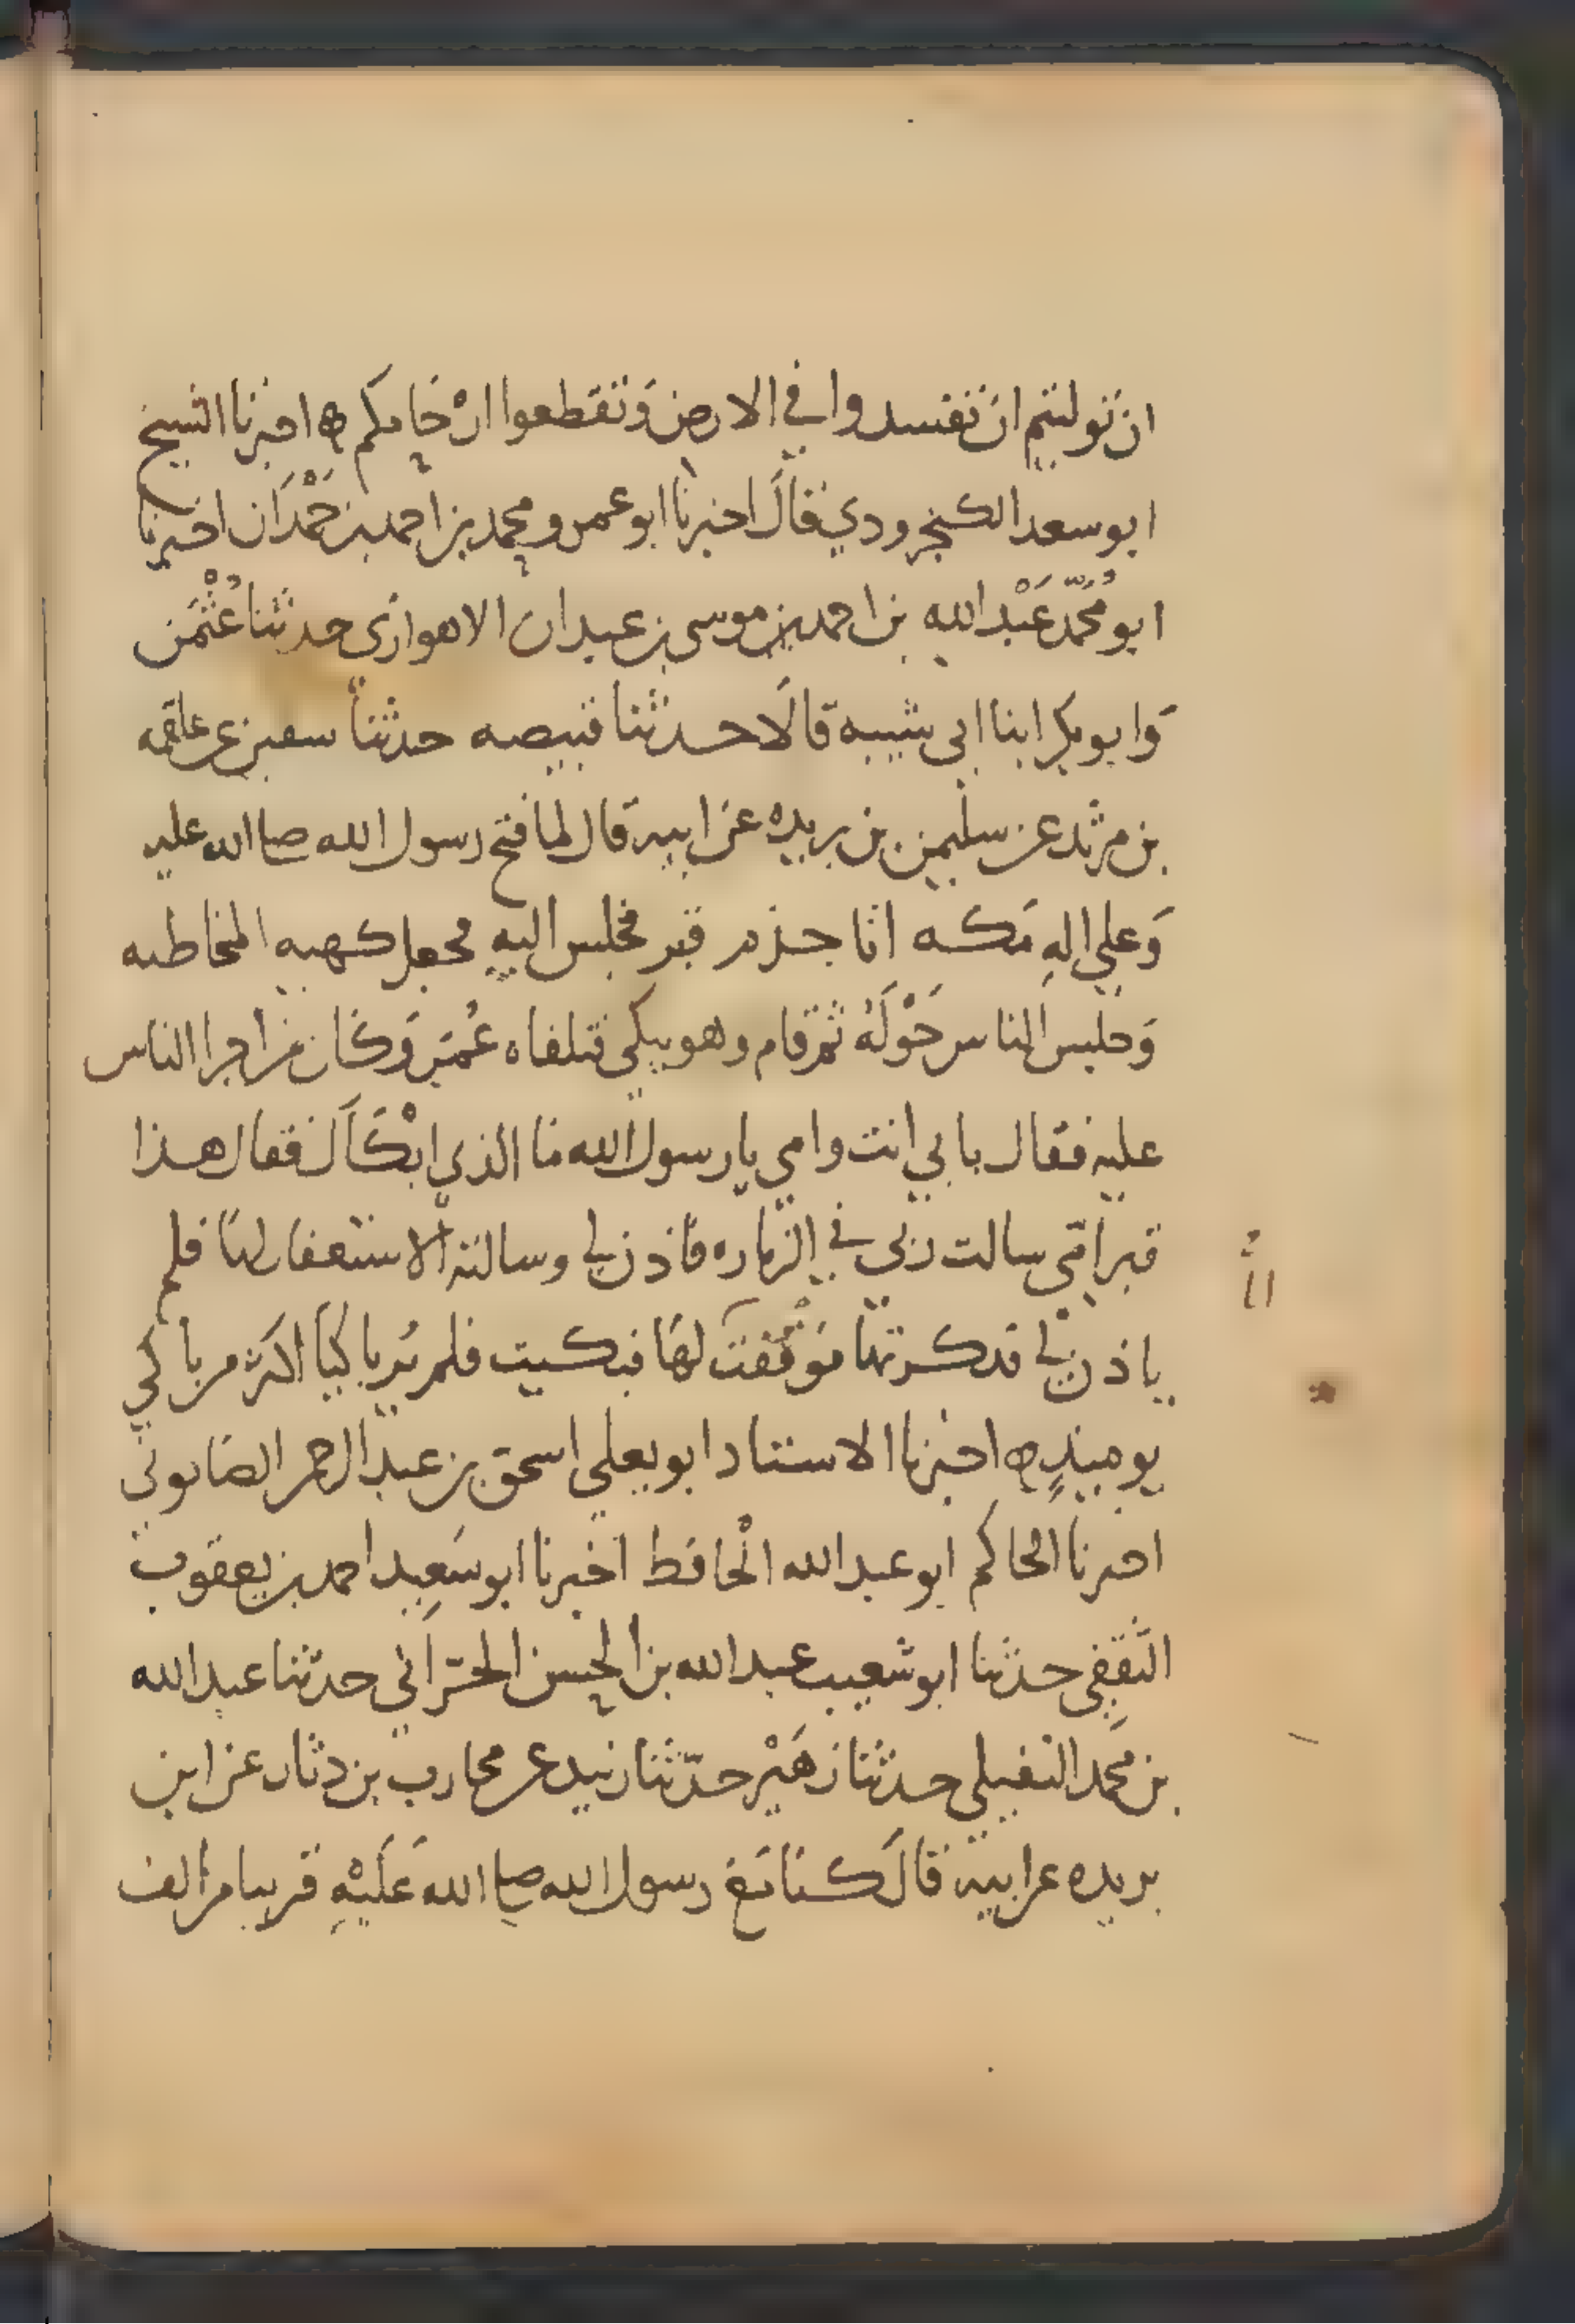 ان تَوليتم ان تفسدوا في الارض وَتقطعوا ارْحَامكم ه اخبرنا الشيخ
ابو سعد الكنجرودي قالَ اخبرنا ابو عمرو محمد بن احمد بن حَمْدَان اخبرنا
ابو مُحَمّد عَبْد الله بن احمد بن موسى بن عبدان الاهوازي حدثنا عُثْمَن
وَابو بكر ابنا ابي شيبه قالَا حدثنا قبيصه حدثنا سفين عن علقمه
بن مرثد عن سليمن بن بريده عن ابيه قال لما فتح رسول الله صلى الله عليه
وَعلي الهِ مَكه اتا جذم قبر فجلس اليهِ فجعل كهيه المخاطبه
وَجلس الناس حَوْلَهُ ثم قام وهو يبكي فتلقاه عُمَر وَكَان من اجرا الناس
عليه فقال بابي انت وامي يا رسول الله مَا الذي ابْكَاَك فقال هذا
قبر امّي سالت ربي في الزياره فاذن لي وسالته الاستغفار لهَا فلم
ياذن لي فذكرتها فوَقفت لهَا فبكيت فلم يُر باكيًا اكثر من باكي
يوميذٍ ه اخبرنا الاستاد ابو يعلي اسحق بن عبد الرحمن الصَابوني
اخبرنا الحاكم ابو عبد الله الْحَافظ اخبرنا ابو سَعِيد احمد بن يعقوب
الثَقفِي حدثنا ابو شعيب عبد الله بن الحسن الحَرّاني حدثنا عبد الله
بن محمد النفيلي حدثنا زهَيْر حدّثنا زبيد عن محارب بن دثار عن ابن
بريده عن ابيه قالَ كنا مَع رسول الله صلى الله عَلَيْهِ قريبا من الف